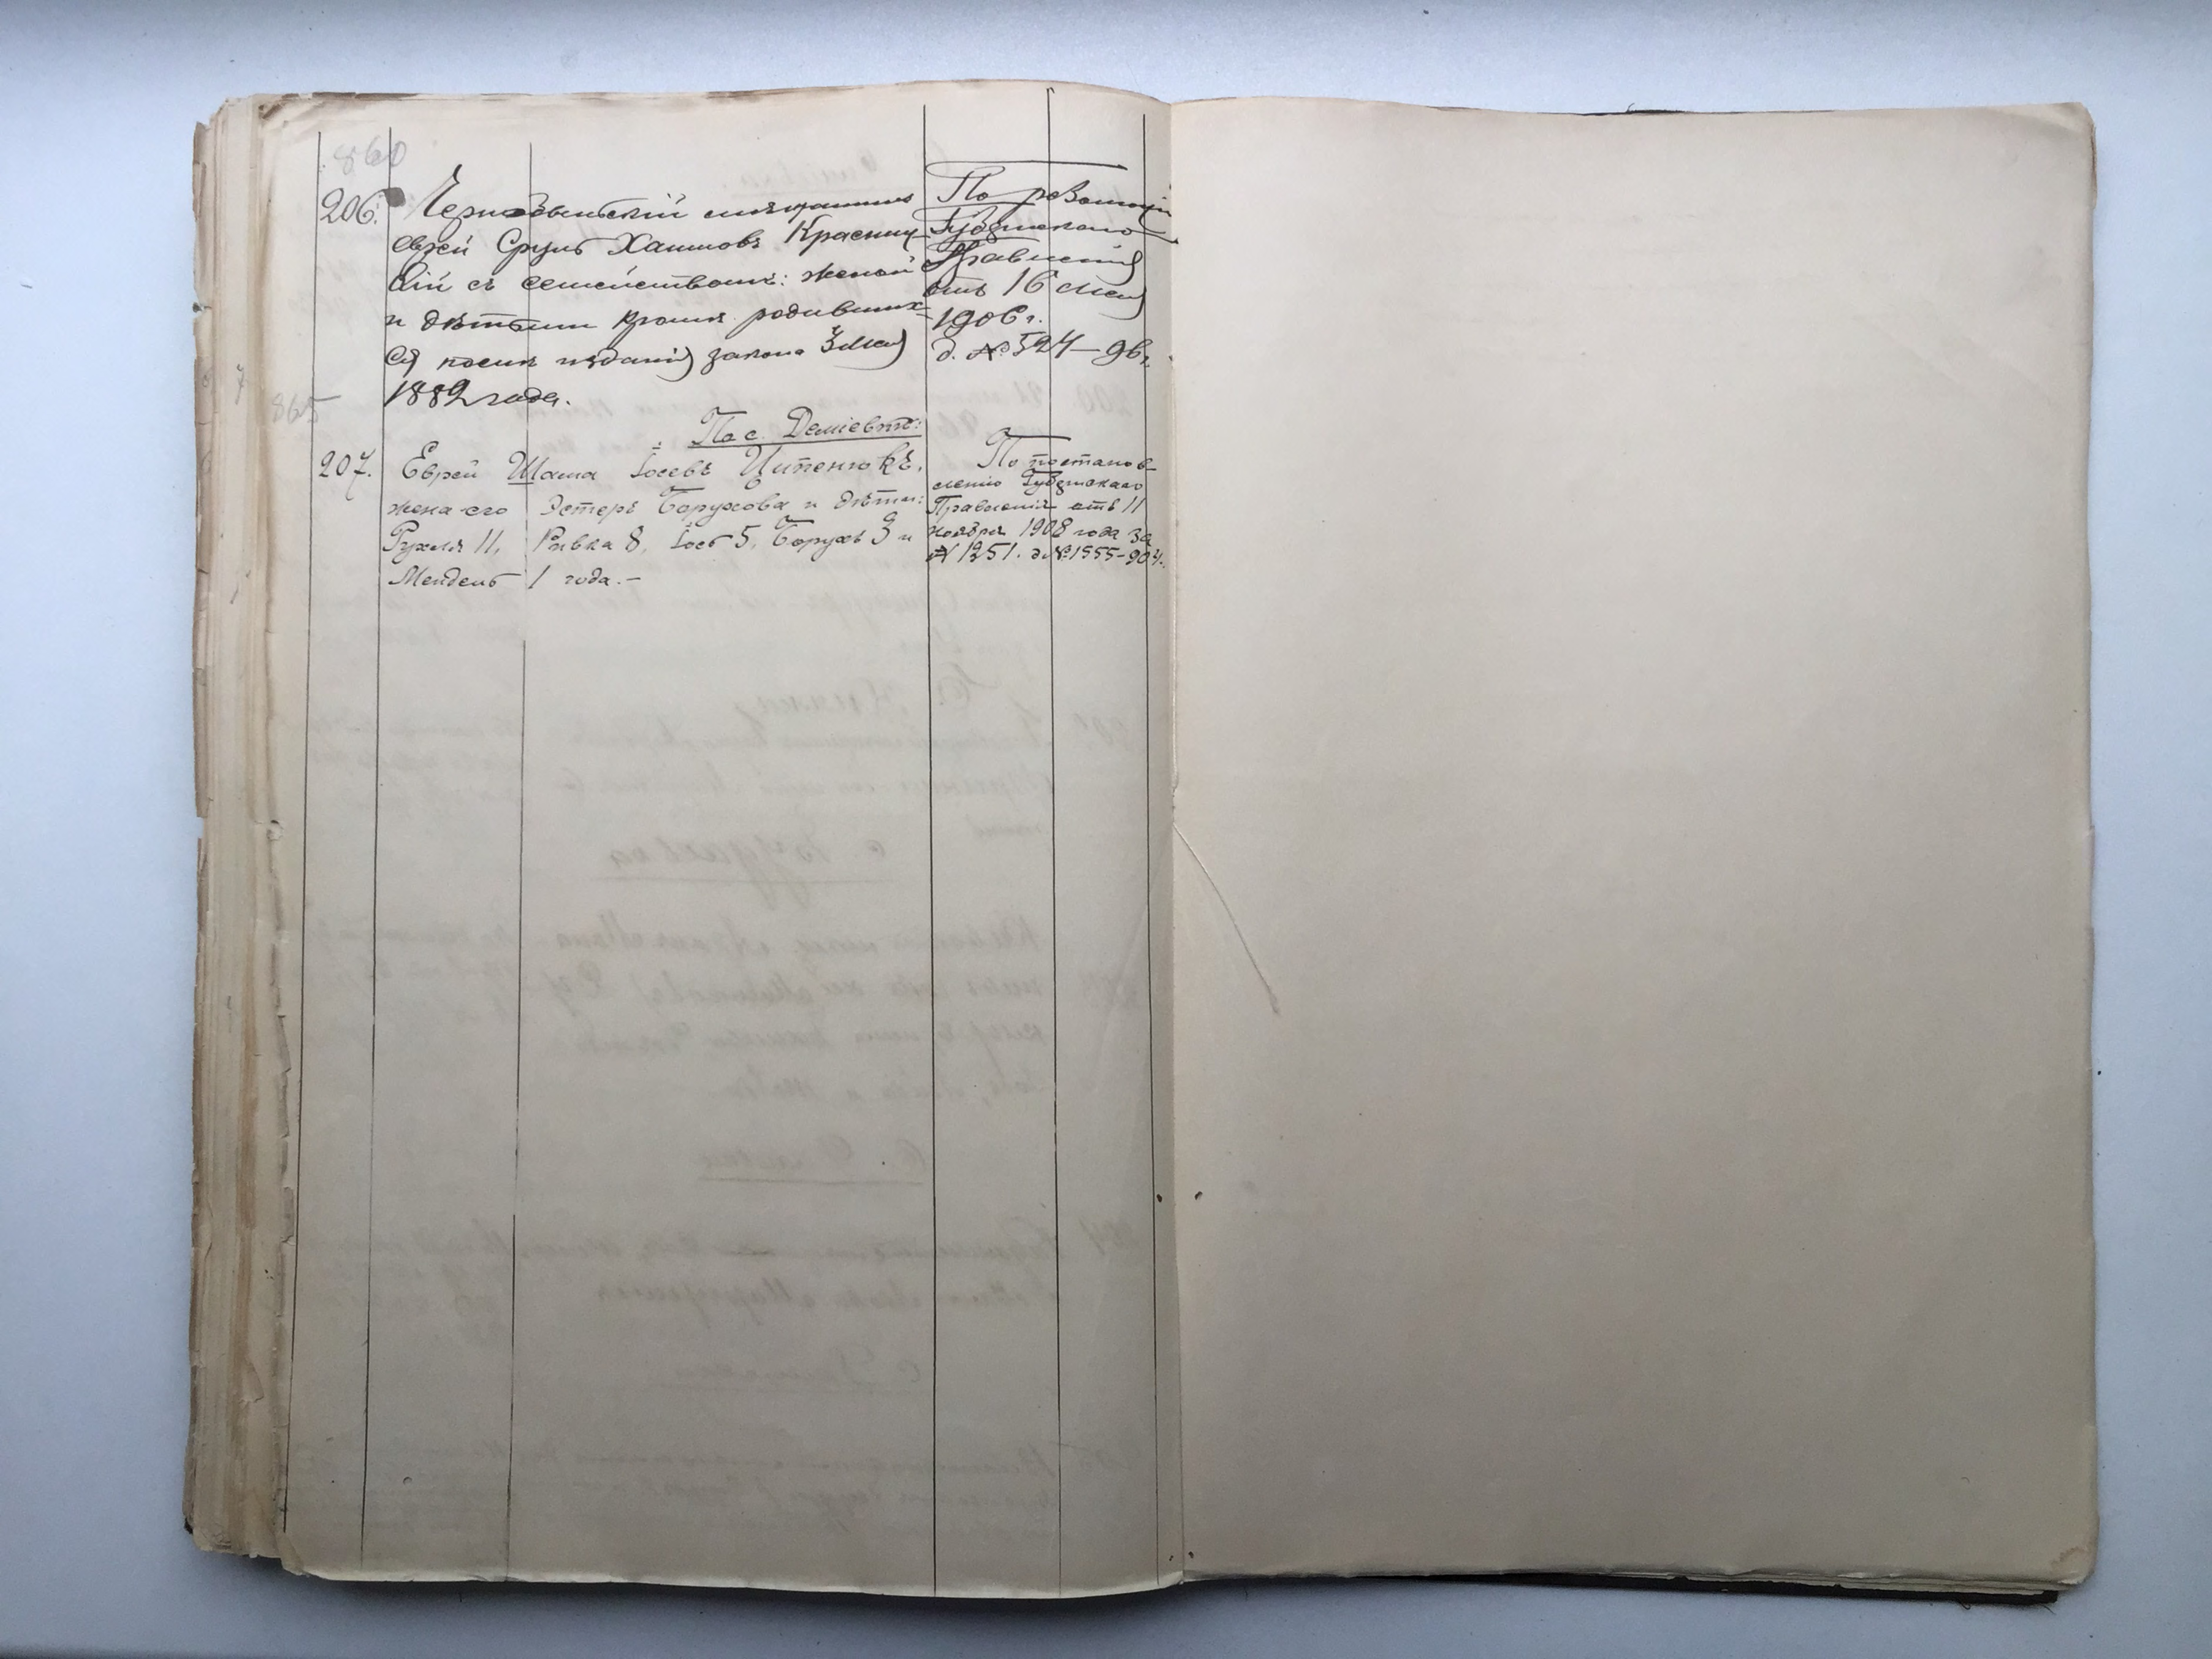 860
206. Черно
еврей Сруль Хаимовъ Красниц-
кій съ семействомъ: женой
и дѣтьми кромѣ родивших-
ся послѣ изданія закона 3 Мая
1882 года.
По резолюціи
Губернскаго
Правленія
отъ 16 Мая
1906 г.
д. № 524—96 г.
865
По с. Деміевкѣ:
207. Еврей Шама Іосевъ Ципенюкъ,
жена его Эстеръ Борухова и дѣти:
Рухля 11, Ривка 8, Іось 5, Борухъ 3 и
Мендель 1 года.—
По постанов-
ленію Губернскаго
Правленія отъ 11
ноября 1908 года за
№ 1251. д. № 1555-904.